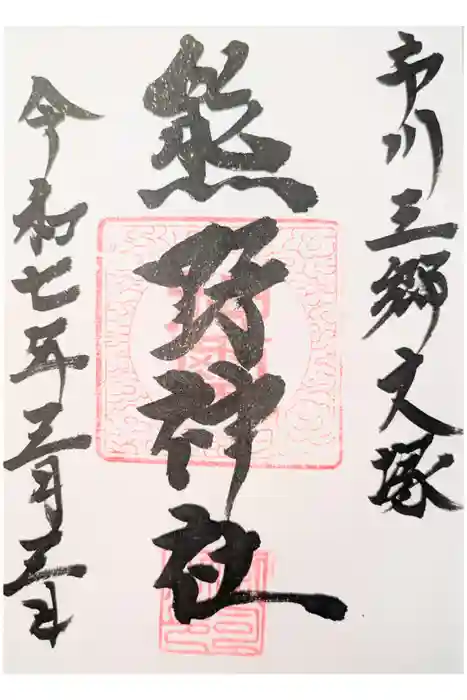 市川三郷文塚
熊野神社
令和七年三月三日